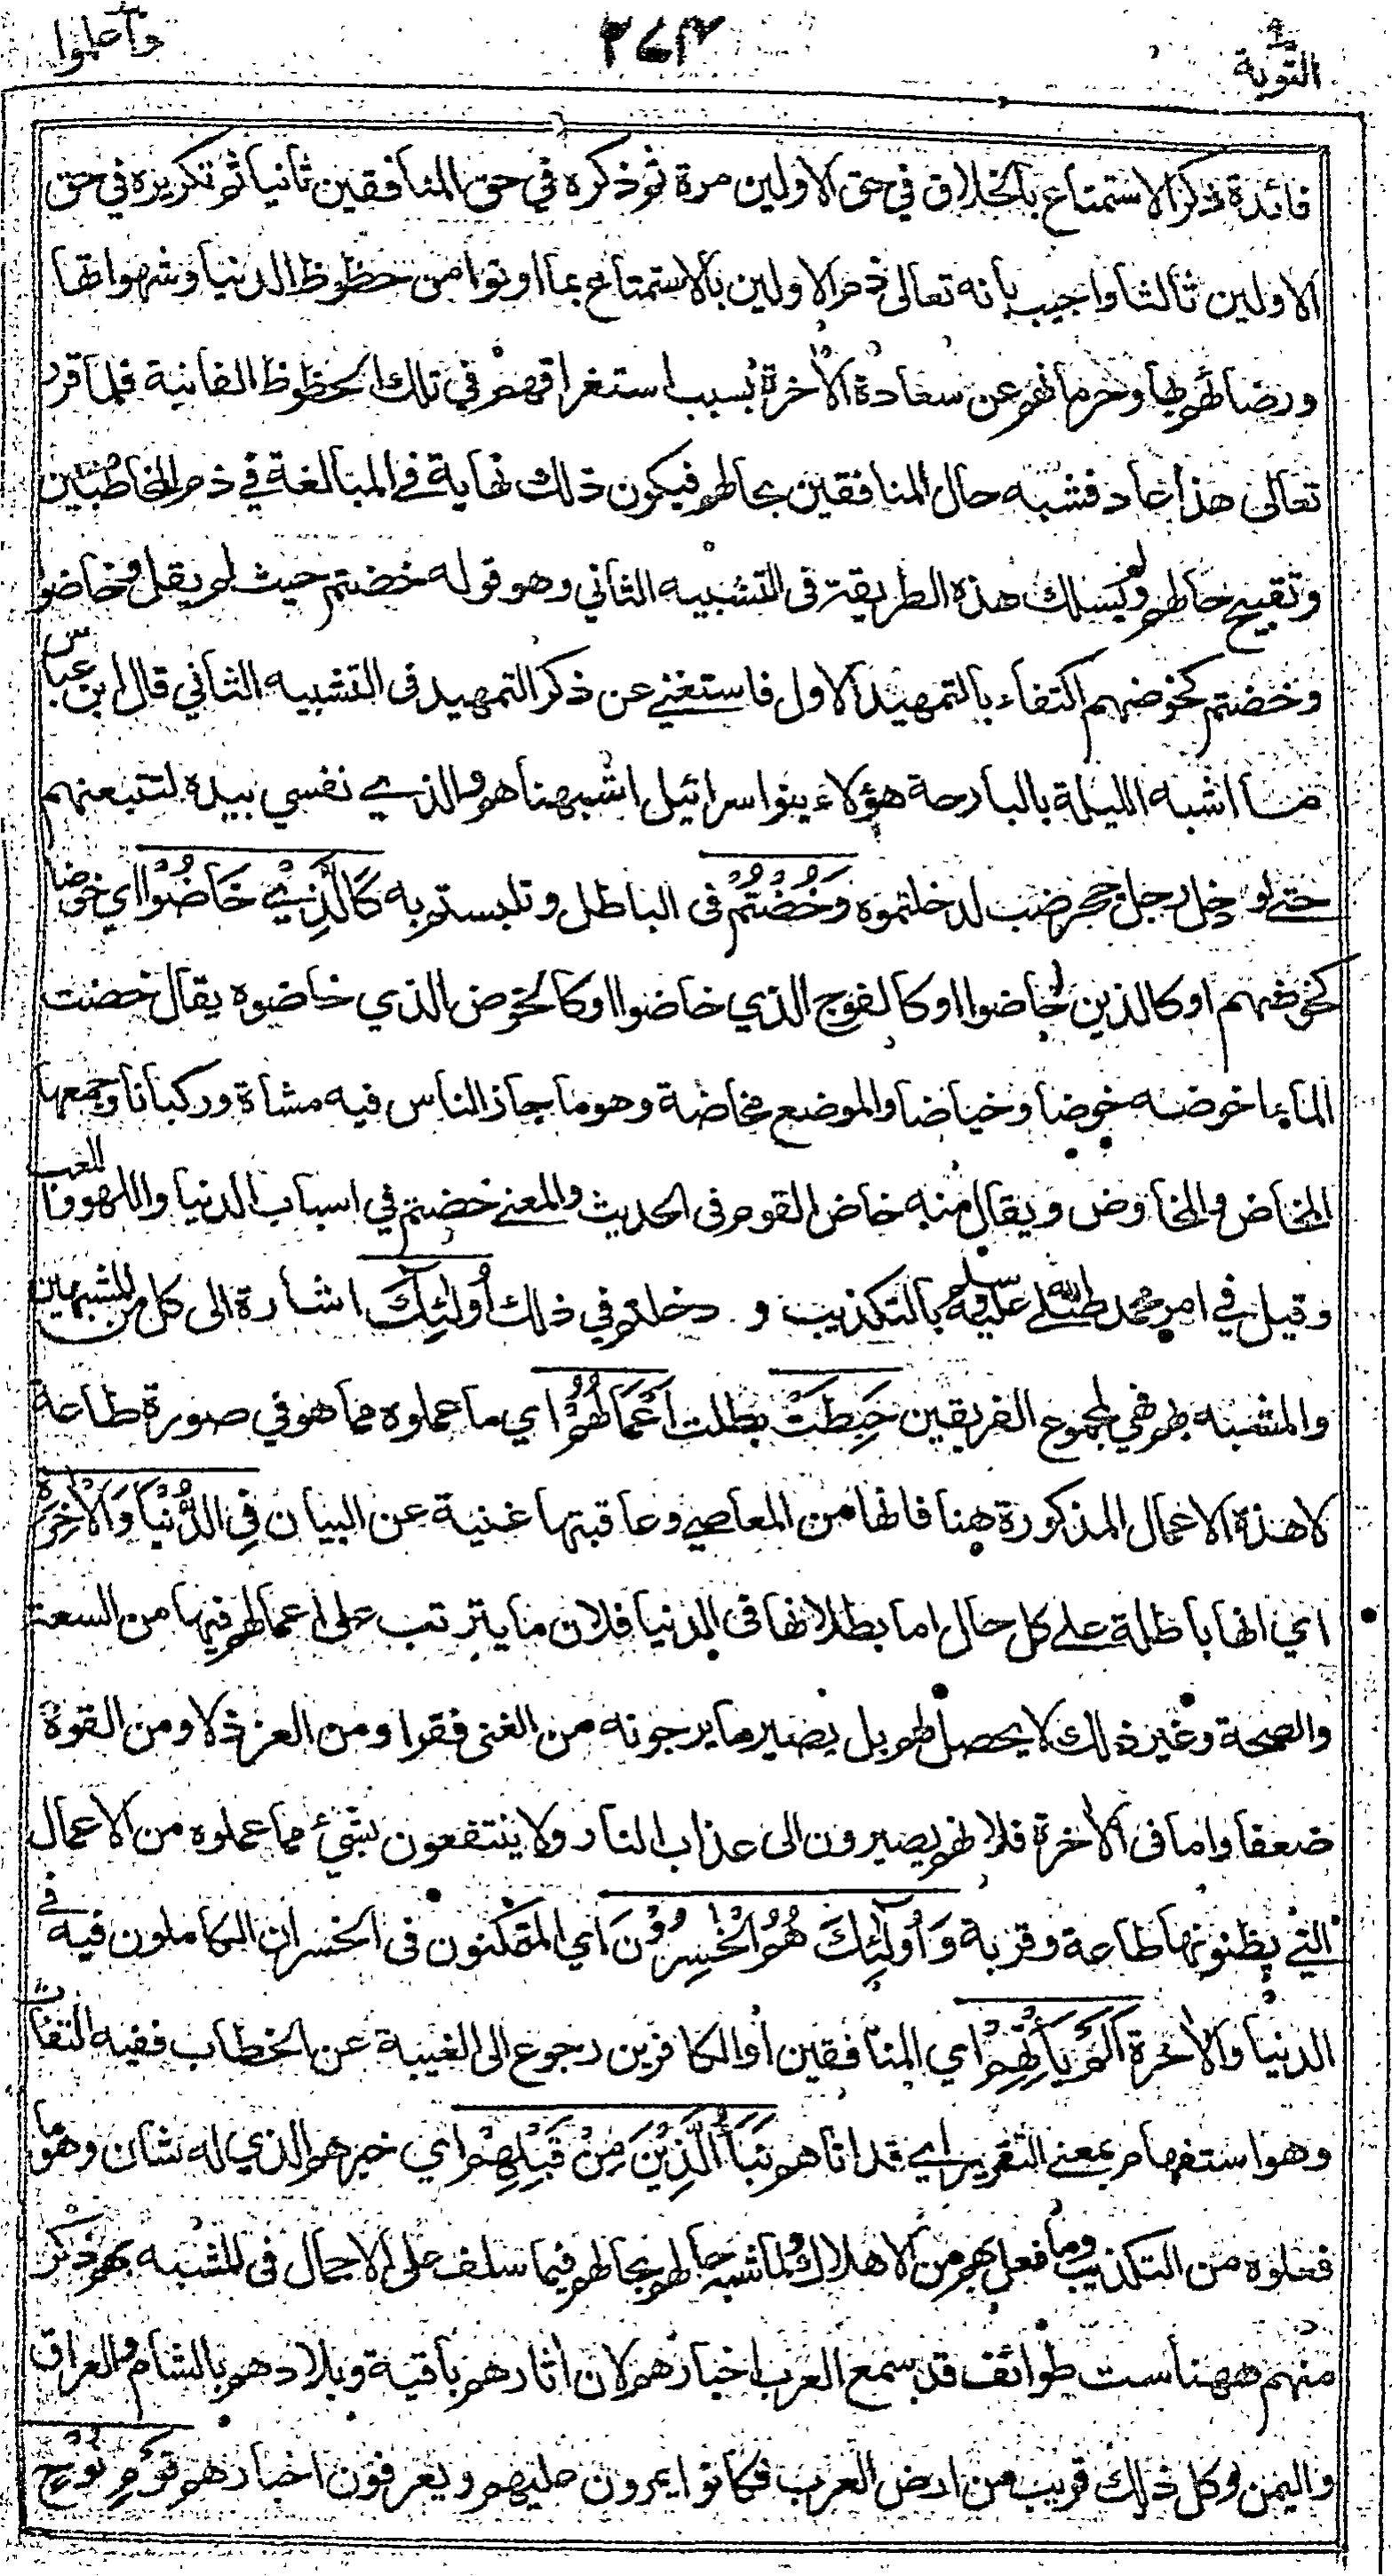 التوبة ٩
٢٧٤
واعلموا
فائدة ذكر الاستمتاع بالخلاق في حق الاولين مرة ثم ذكره في حق المنافقين ثانيا ثم تكريره في حق
الاولين ثالثا واجيب بانه تعالى ذم الاولين بالاستمتاع بما اوتوا من حظوظ الدنيا وشهواتها
ورضاهم بها وحرمانهم عن سعادة الآخرة بسبب استغراقهم في تلك الحظوظ الفانية فلما قرر
تعالى هذا عاد فشبه حال المنافقين بحالهم فيكون ذلك نهاية في المبالغة في ذم المخاطبين
وتقبيح حالهم ولم يسلك هذه الطريقة في التشبيه الثاني وهو قوله خضتم حيث لم يقل وخاضوا
وخضتم كخوضهم اكتفاء بالتمهيد الاول فاستغنى عن ذكر التمهيد فى التشبيه الثاني قال ابن عباس
ما اشبه الليلة بالبارحة هؤلاء بنوا سرائيل اشبهناهم والذي نفسي بيده لتتبعنهم
حتى لو دخل رجل جحر ضب لدخلتموه وَخُضْتُمْ فى الباطل وتلبستم به كَالَّذِيْ خَاضُوْا اي خوضا
كخوضهم او كالذين خاضوا او كالفوج الذي خاضوا او كالخوض الذي خاضوه يقال خضت
الماء اخوضه خوضا وخياضا والموضع مخاضة وهو ما جاز الناس فيه مشاة وركبانا وجمعها
المخاض والمخاوض ويقال منه خاض القوم فى الحديث والمعنى خضتم في اسباب الدنيا واللهو واللعب
وقيل في امر محمد صلى الله عليه وسلم بالتكذيب و دخلتم في ذلك اُولٰئِكَ اشارة الى كل من المشبهين
والمشبه بهم فهي لمجموع الفريقين حَبِطَتْ بطلت اَعْمَالُهُمْ اي ما عملوه مما هو في صورة طاعة
لا هذه الاعمال المذكورة هنا فانها من المعاصي وعاقبتها غنية عن البيان فِي الدُّنْيَا وَالْاٰخِرَةِ
اي انها باطلة على كل حال اما بطلانها فى الدنيا فلان ما يترتب على اعمالهم فيها من السعة
والصحة وغير ذلك لا يحصل لهم بل يصير ما يرجونه من الغنى فقرا ومن العز ذلا ومن القوة
ضعفا واما فى الاخرة فلانهم يصيرون الى عذاب النار ولا ينتفعون بشئ مما عملوه من الاعمال
التي يظنونها طاعة وقربة وَاُولٰئِكَ هُمُ الْخٰسِرُوْنَ اي المتمكنون فى الخسران الكاملون فيه في
الدنيا والاخرة اَلَمْ يَاْتِهِمْ اي المنافقين او الكافرين رجوع الى الغيبة عن الخطاب ففيه التفات
وهو استفهام بمعنى التقرير اي قد اتاهم نَبَاُ الَّذِيْنَ مِنْ قَبْلِهِمْ اي خبرهم الذي له شان وهو ما
فعلوه من التكذيب وما فعل بهم من الاهلاك ولما شبه حالهم بحالهم فيما سلف على الاجمال فى المشبه بهم ذكر
منهم ههنا ست طوائف قد سمع العرب اخبارهم لان اثارهم باقية وبلادهم بالشام والعراق
واليمن وكل ذلك قريب من ارض العرب فكانوا يمرون عليهم ويعرفون اخبارهم قَوْمِ نُوْحٍ